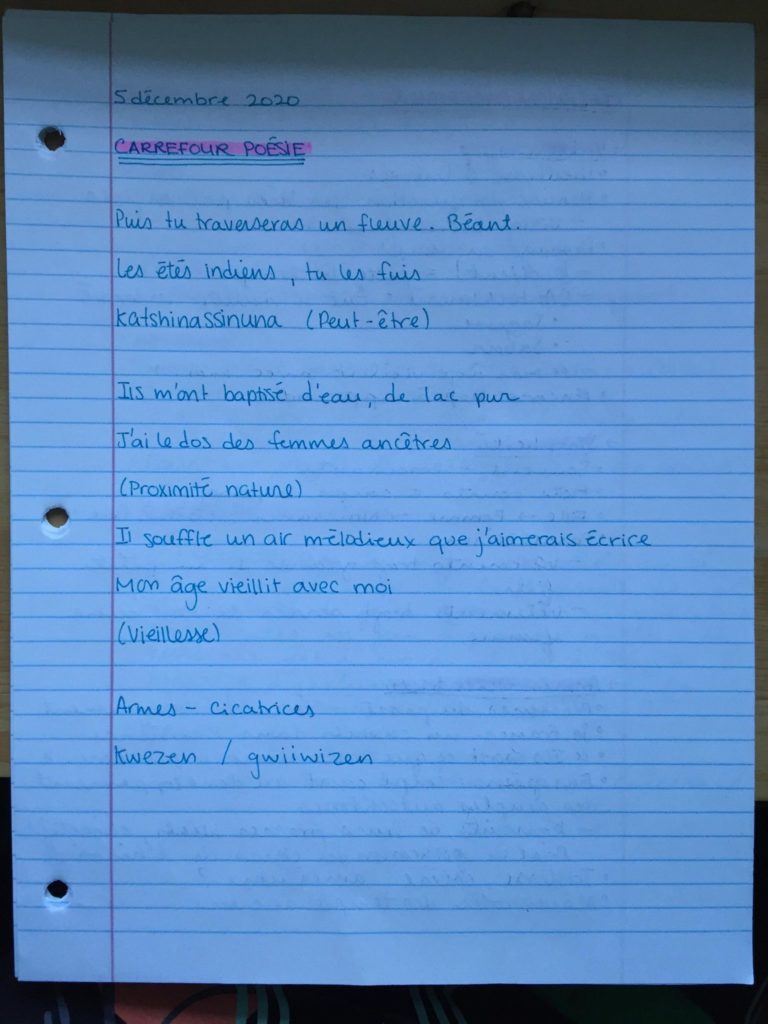 5 décembre 2020
CARREFOUR POÉSIE
Puis tu traverseras un fleuve. Béant.
Les étés indiens, tu les fuis
Katshinassinuna (Peut-être)
Ils m'ont baptisé d'eau, de lac pur
J'ai le dos des femmes ancêtres
(Proximité nature)
Il souffle un air mélodieux que j'aimerais écrice
Mon âge vieillit avec moi
(Vieillesse)
Armes - cicatrices
Kwezen / gwiiwizen